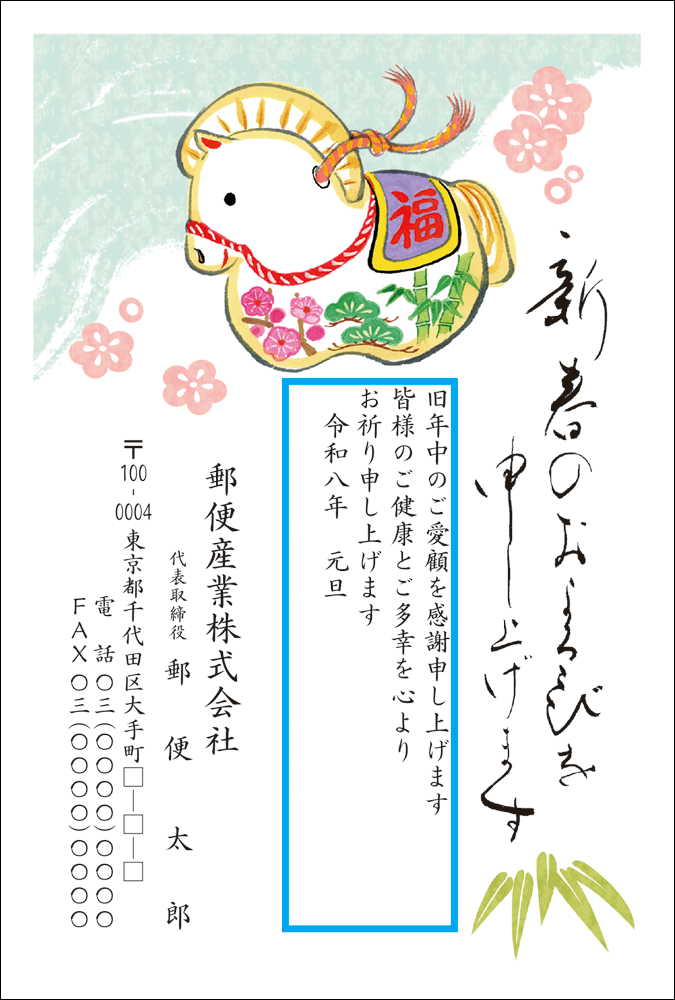 福
新春のおよろこびを
申し上げます
旧年中のご愛顧を感謝申し上げます
皆様のご健康とご多幸を心より
お祈り申し上げます
令和八年　元旦
郵便産業株式会社
代表取締役　郵便太郎
〒100-0004　東京都千代田区大手町□―□―□
電話〇三(〇〇〇〇)〇〇〇〇
FAX〇三(〇〇〇〇)〇〇〇〇